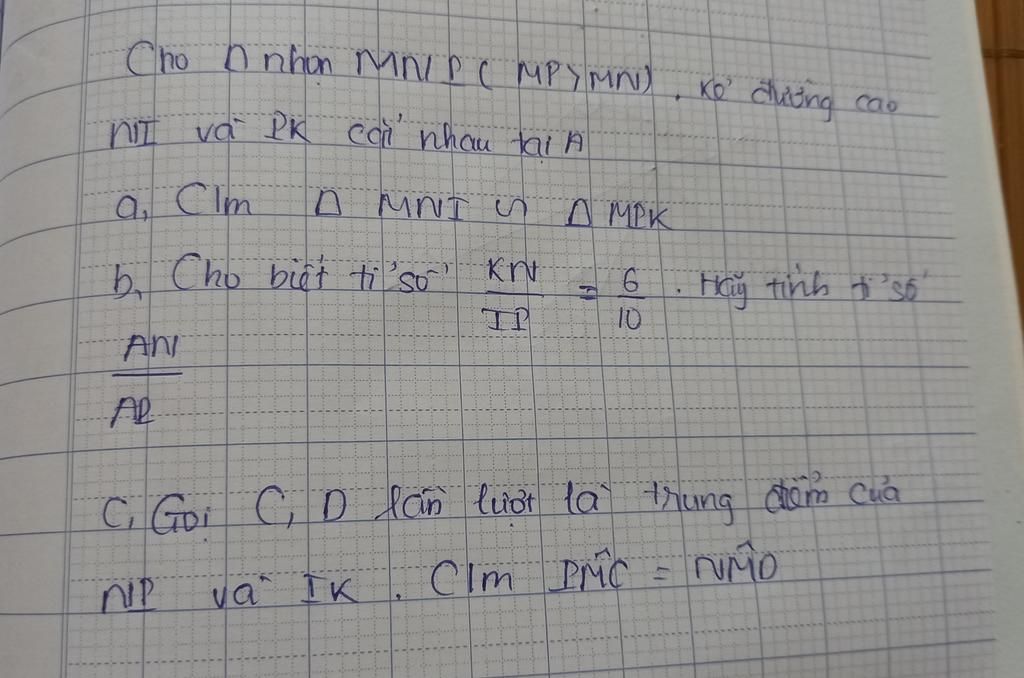 Cho Δ nhọn MNP ( MP > MN) . Kẻ đường cao
NI và PK cắt nhau tại A
a, C/m Δ MNI ∽ Δ MPK
b, Cho biết tỉ số KN/IP = 6/10 . Hãy tính tỉ số
AN/AP
C, Gọi C, D lần lượt là trung điểm của
NP và IK . C/m PM̂C = NM̂D